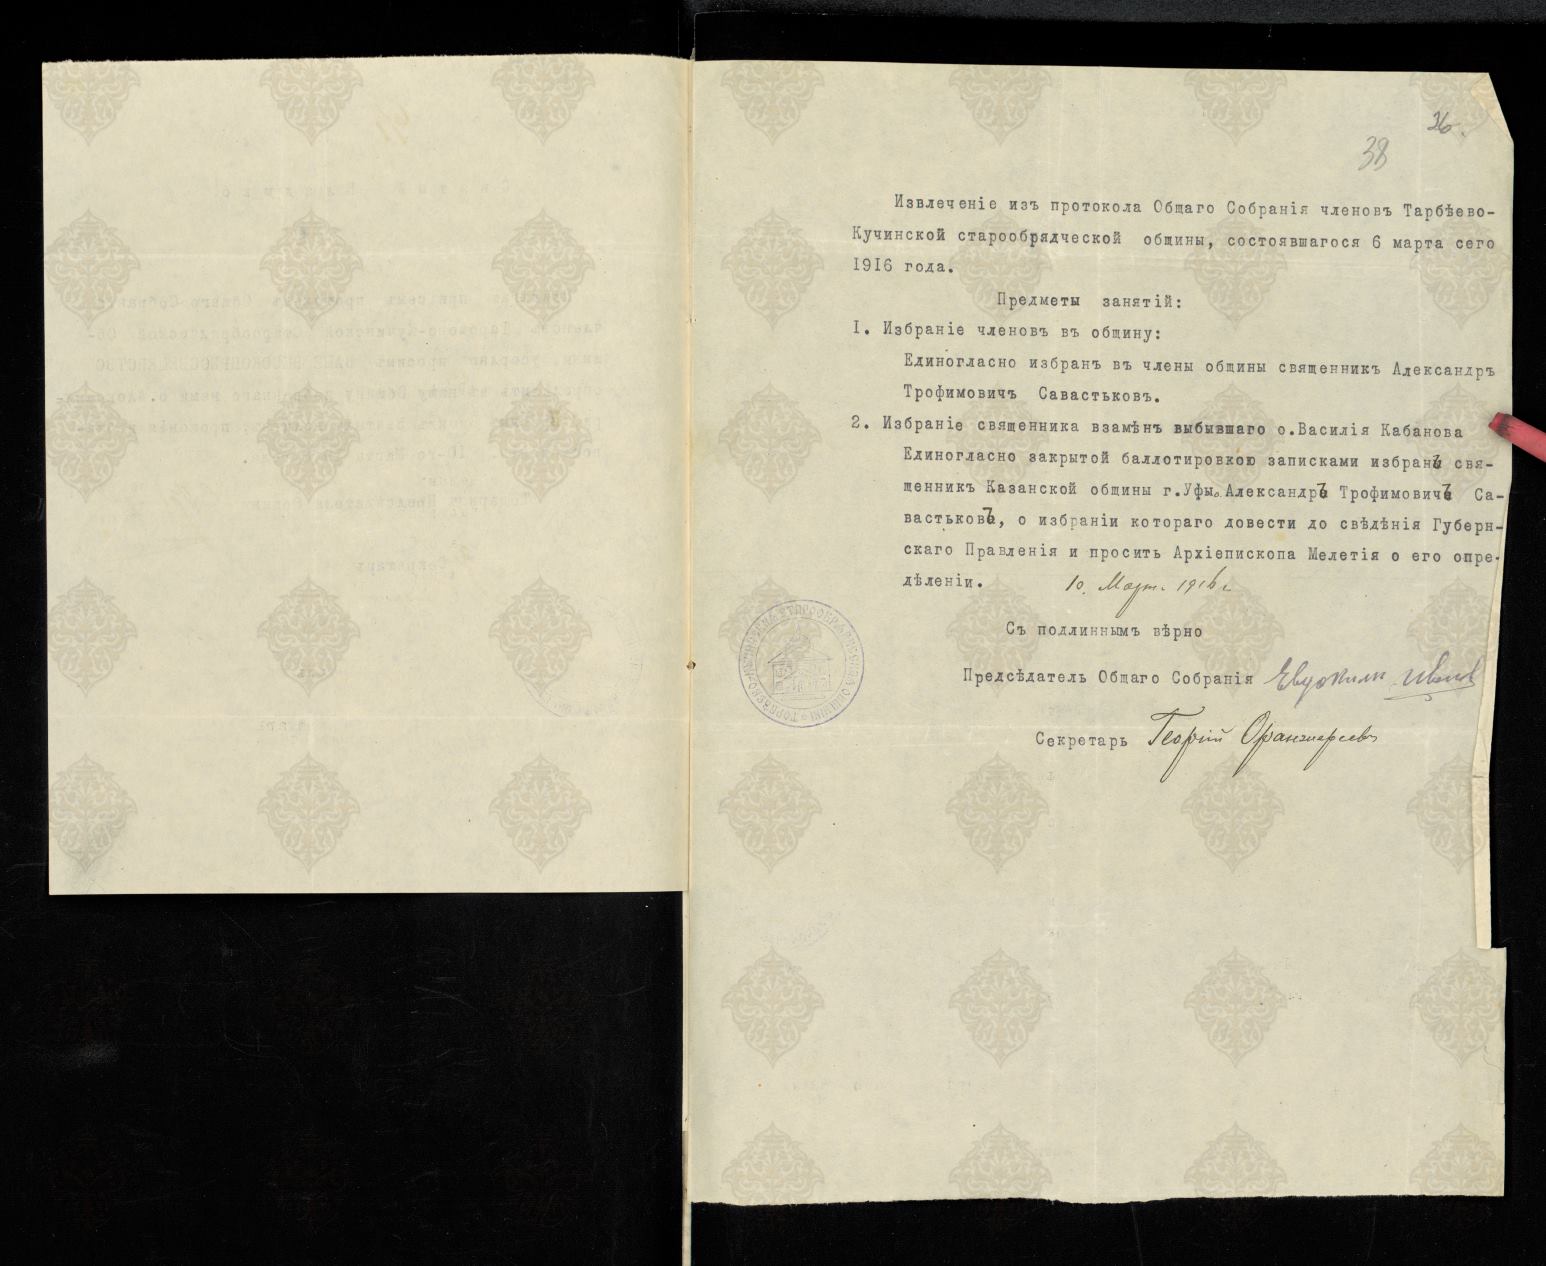 26.
38
Извлеченіе изъ протокола Общаго Собранія членовъ Тарбѣево-
Кучинской старообрядческой общины, состоявшагося 6 марта сего
1916 года.
Предметы занятій:
1. Избраніе членовъ въ общину:
Единогласно избранъ въ члены общины священникъ Александръ
Трофимовичъ Савастьковъ.
2. Избраніе священника взамѣнъ выбывшаго о.Василія Кабанова
Единогласно закрытой баллотировкою записками избранъ свя-
щенникъ Казанской общины г.Уфы Александръ Трофимовичъ Са-
вастьковъ, о избраніи котораго довести до свѣдѣнія Губерн-
скаго Правленія и просить Архіепископа Мелетія о его опре-
дѣленіи. 10. Март. 1916 г.
Съ подлиннымъ вѣрно
Предсѣдатель Общаго Собранія Евдокимъ
Секретарь Георгій